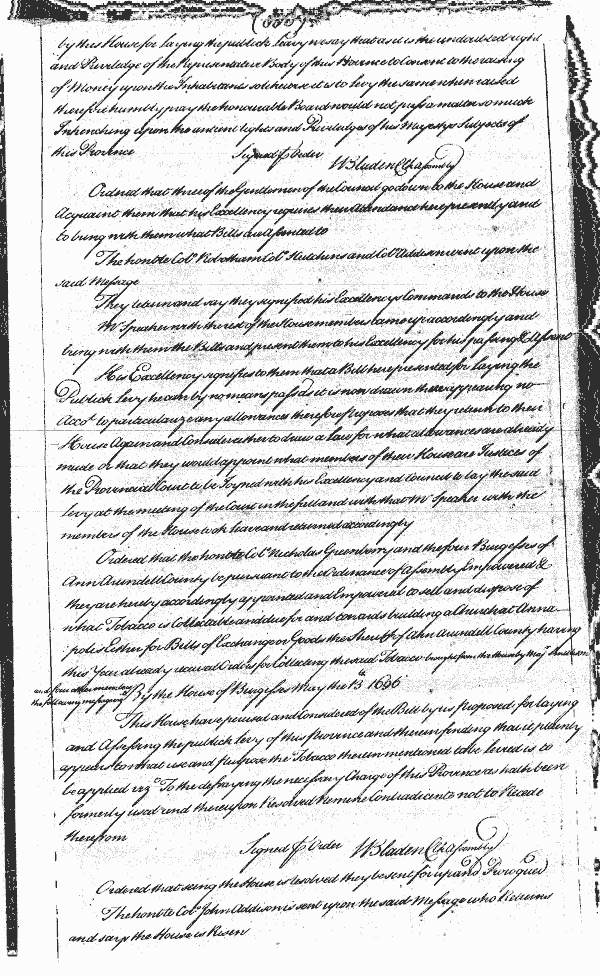 by this House for laying the publick Levy we say that as it is the undoubted right
and Priviledge of the Representative Body of this Province to Consent to the raising
of Money upon the Inhabitants soe likewise it is to levy the same when raised
therefore humbly pray the honourable Board would not pass a matter so much
Intrenching upon the ancient rights and Priviledges of his Majestys Subjects of
this Province
Signed p Order WBladen Cl Assembly
Ordered that three of the Gentlemen of the Council go down to the House and
Acquaint them that his Excellency requires their Attendance here presently and
to bring with them what Bills are Assented to
The honble Col. Robotham Col. Hutchins and Col. Addison went upon the
said Message
They return and say they signified his Excellencys Commands to the House
Mr Speaker with the rest of the House members came up accordingly and
bring with them the Bills and present them to his Excellency for his passing & Assent
His Excellency signifies to them that a Bill here presented for laying the
Publick Levy he can by no means pass as it is now drawn there appearing no
Acct to particularize any allowances therefore proposes that they return to their
House Again and Consider either to draw a Law for what allowances are already
made or that they would appoint what members of their House are Justices of
the Provincial Court to be Joyned with his Excellency and Council to lay the said
levy at the meeting of the Court in the fall and with that Mr Speaker with the
members of the House took leave and returned accordingly
Ordered that the honble Col. Nicholas Greenberry and the four Burgesses of
Ann Arundell County be pursuant to the Ordinance of Assembly Empowered &
they are hereby accordingly appointed and Empowered to sell and dispose of
what Tobacco is Collectable and due for and towards building a Church at Anna
polis Either for Bills of Exchange or Goods the Sheriff of Ann Arundell County having
this Year already received Orders for Collecting the said Tobacco brought from the House by
and four other members
the following message
By the House of Burgesses May the 13th 1696
This House have perused and Considered of the Bill by us proposed for laying
and Assessing the publick levy of this Province and therein finding that it plainly
appears to what use and purpose the Tobacco therein mentioned to be levied is to
be applied vizt To the defraying the necessary Charge of this Province as hath been
formerly used and thereupon Resolved Nemine Contradicente not to Recede
therefrom
Signed p Order WBladen Cl Assembly
Ordered that seeing the House is resolved they be sent for up and Prorogued
The honble Col. John Addison is sent upon the said Message who Returns
and says the House is Risen